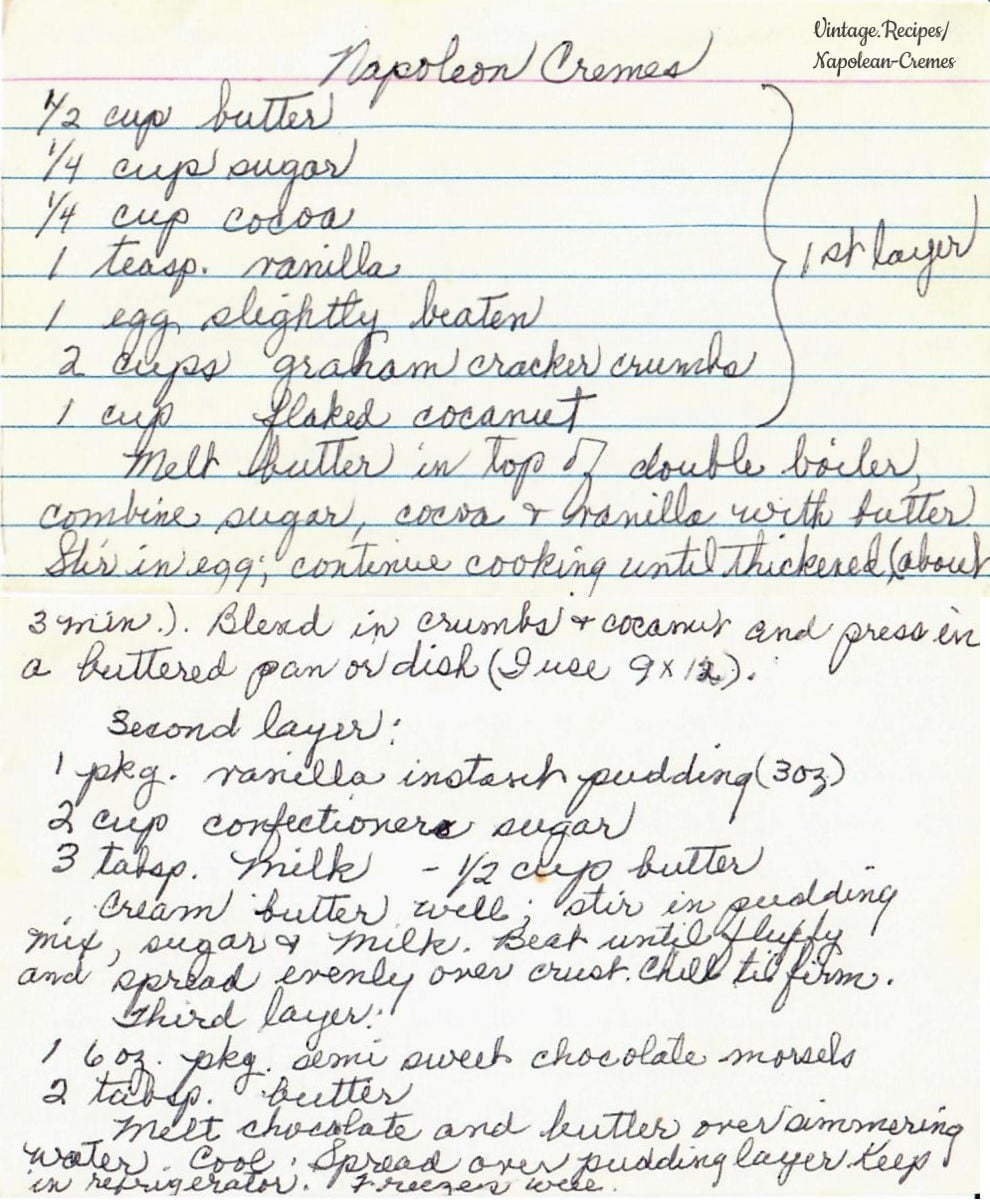 Vintage.Recipes/
Napolean-Cremes
Napoleon Cremes
1/2 cup butter
1/4 cup sugar
1/4 cup cocoa
1 teasp. vanilla
1 egg slightly beaten
2 cups graham cracker crumbs
1 cup flaked cocanut
1st layer
Melt butter in top of double boiler,
combine sugar, cocoa & vanilla with butter
Stir in egg; continue cooking until thickened (about
3 min.). Blend in crumbs & cocanut and press in
a buttered pan or dish (I use 9 x 12).
Second layer:
1 pkg. vanilla instant pudding (3 oz)
2 cup confectioners sugar
3 tabsp. milk - 1/2 cup butter
Cream butter well; stir in pudding
mix, sugar & milk. Beat until fluffy
and spread evenly over crust. Chill til firm.
Third layer:
1 6 oz. pkg. semi sweet chocolate morsels
2 tabsp. butter
Melt chocolate and butter over simmering
water. Cool. Spread over pudding layer Keep
in refrigerator. Freezes well.